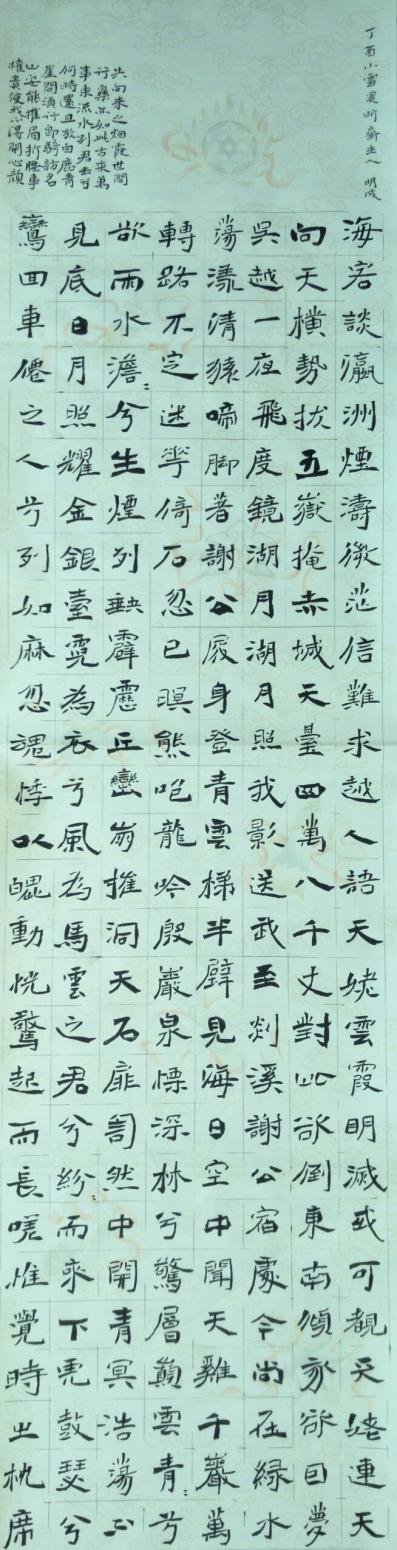 海客談瀛洲煙濤微茫信難求越人語天姥雲霞明滅或可覩天姥連天
向天橫勢拔五嶽掩赤城天臺四萬八千丈對此欲倒東南傾我欲因夢
吳越一夜飛度鏡湖月湖月照我影送我至剡溪謝公宿處今尚在綠水
蕩漾清猿啼脚著謝公屐身登青雲梯半壁見海日空中聞天雞千巖萬
轉路不定迷花倚石忽已暝熊咆龍吟殷巖泉慄深林兮驚層巔雲青〻兮
欲雨水澹〻兮生煙列缺霹靂丘巒崩摧洞天石扉訇然中開青冥浩蕩不
見底日月照耀金銀臺霓為衣兮風為馬雲之君兮紛〻而來下虎鼓瑟兮
鸞回車僊之人兮列如麻忽魂悸以魄動怳驚起而長嗟惟覺時之枕席
失向來之烟霞世間
行樂亦如此古來萬
事東流水別君去兮
何時還且放白鹿青
崖間須行即騎訪名
山安能摧眉折腰事
權貴使我不得開心顏
丁酉小雪昕齋主人